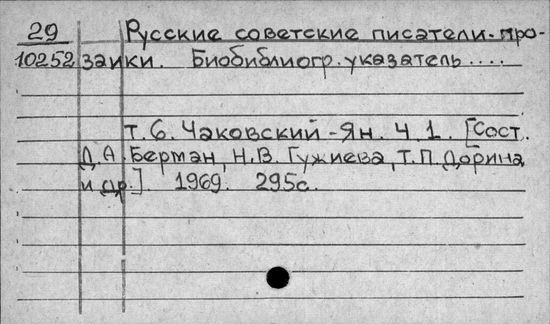 29 Русские советские писатели-про-
10252 заики. Биобиблиогр. указатель ....
т. 6. Чаковский-Ян. Ч. 1. [Сост.
Д.А. Берман, Н.В. Гужиева, Т.П. Дорина
и др.] 1969. 295с.